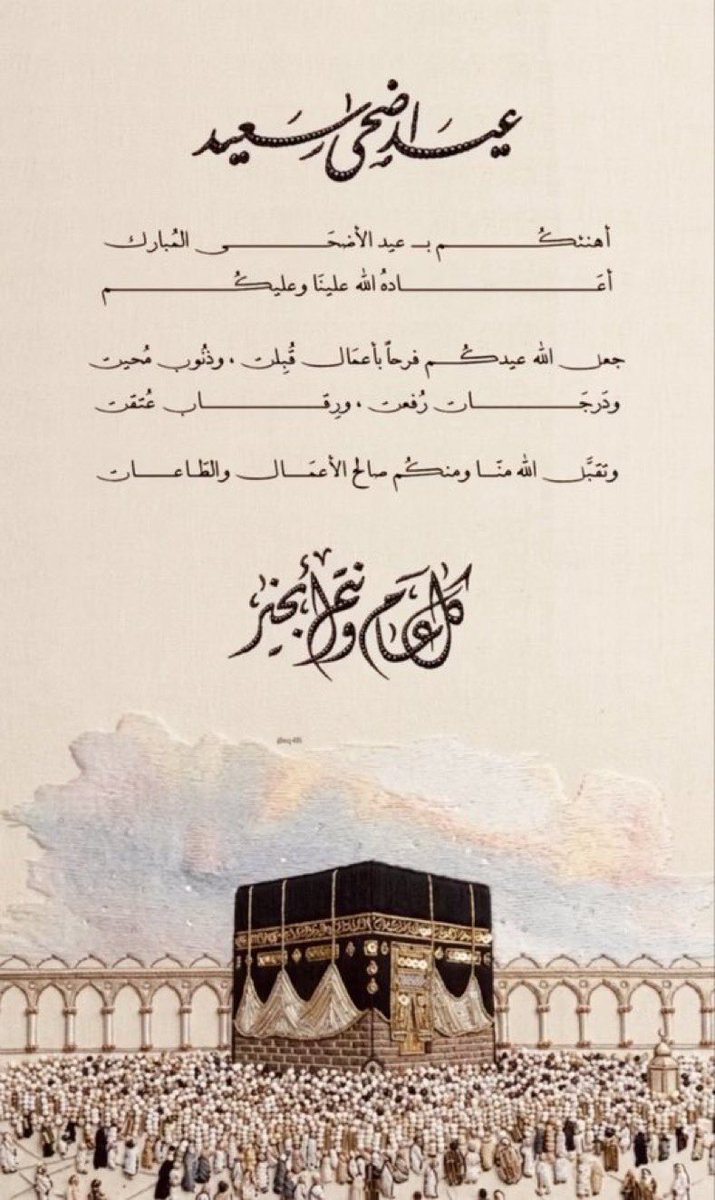 عيد أضحى سعيد
أهنئكُم بـ عيد الأضحَى المُبارك
أعَادهُ الله علينَا وعليكُم
جعل الله عيدكُم فرحاً بأعمَال قُبِلت ، وذُنُوب مُحيت
ودَرجَات رُفعت ، ورِقَاب عُتقت
وتقبَّل الله منَّا ومنكُم صالح الأعمَال والطَاعَات
كل عام وأنتم بخير